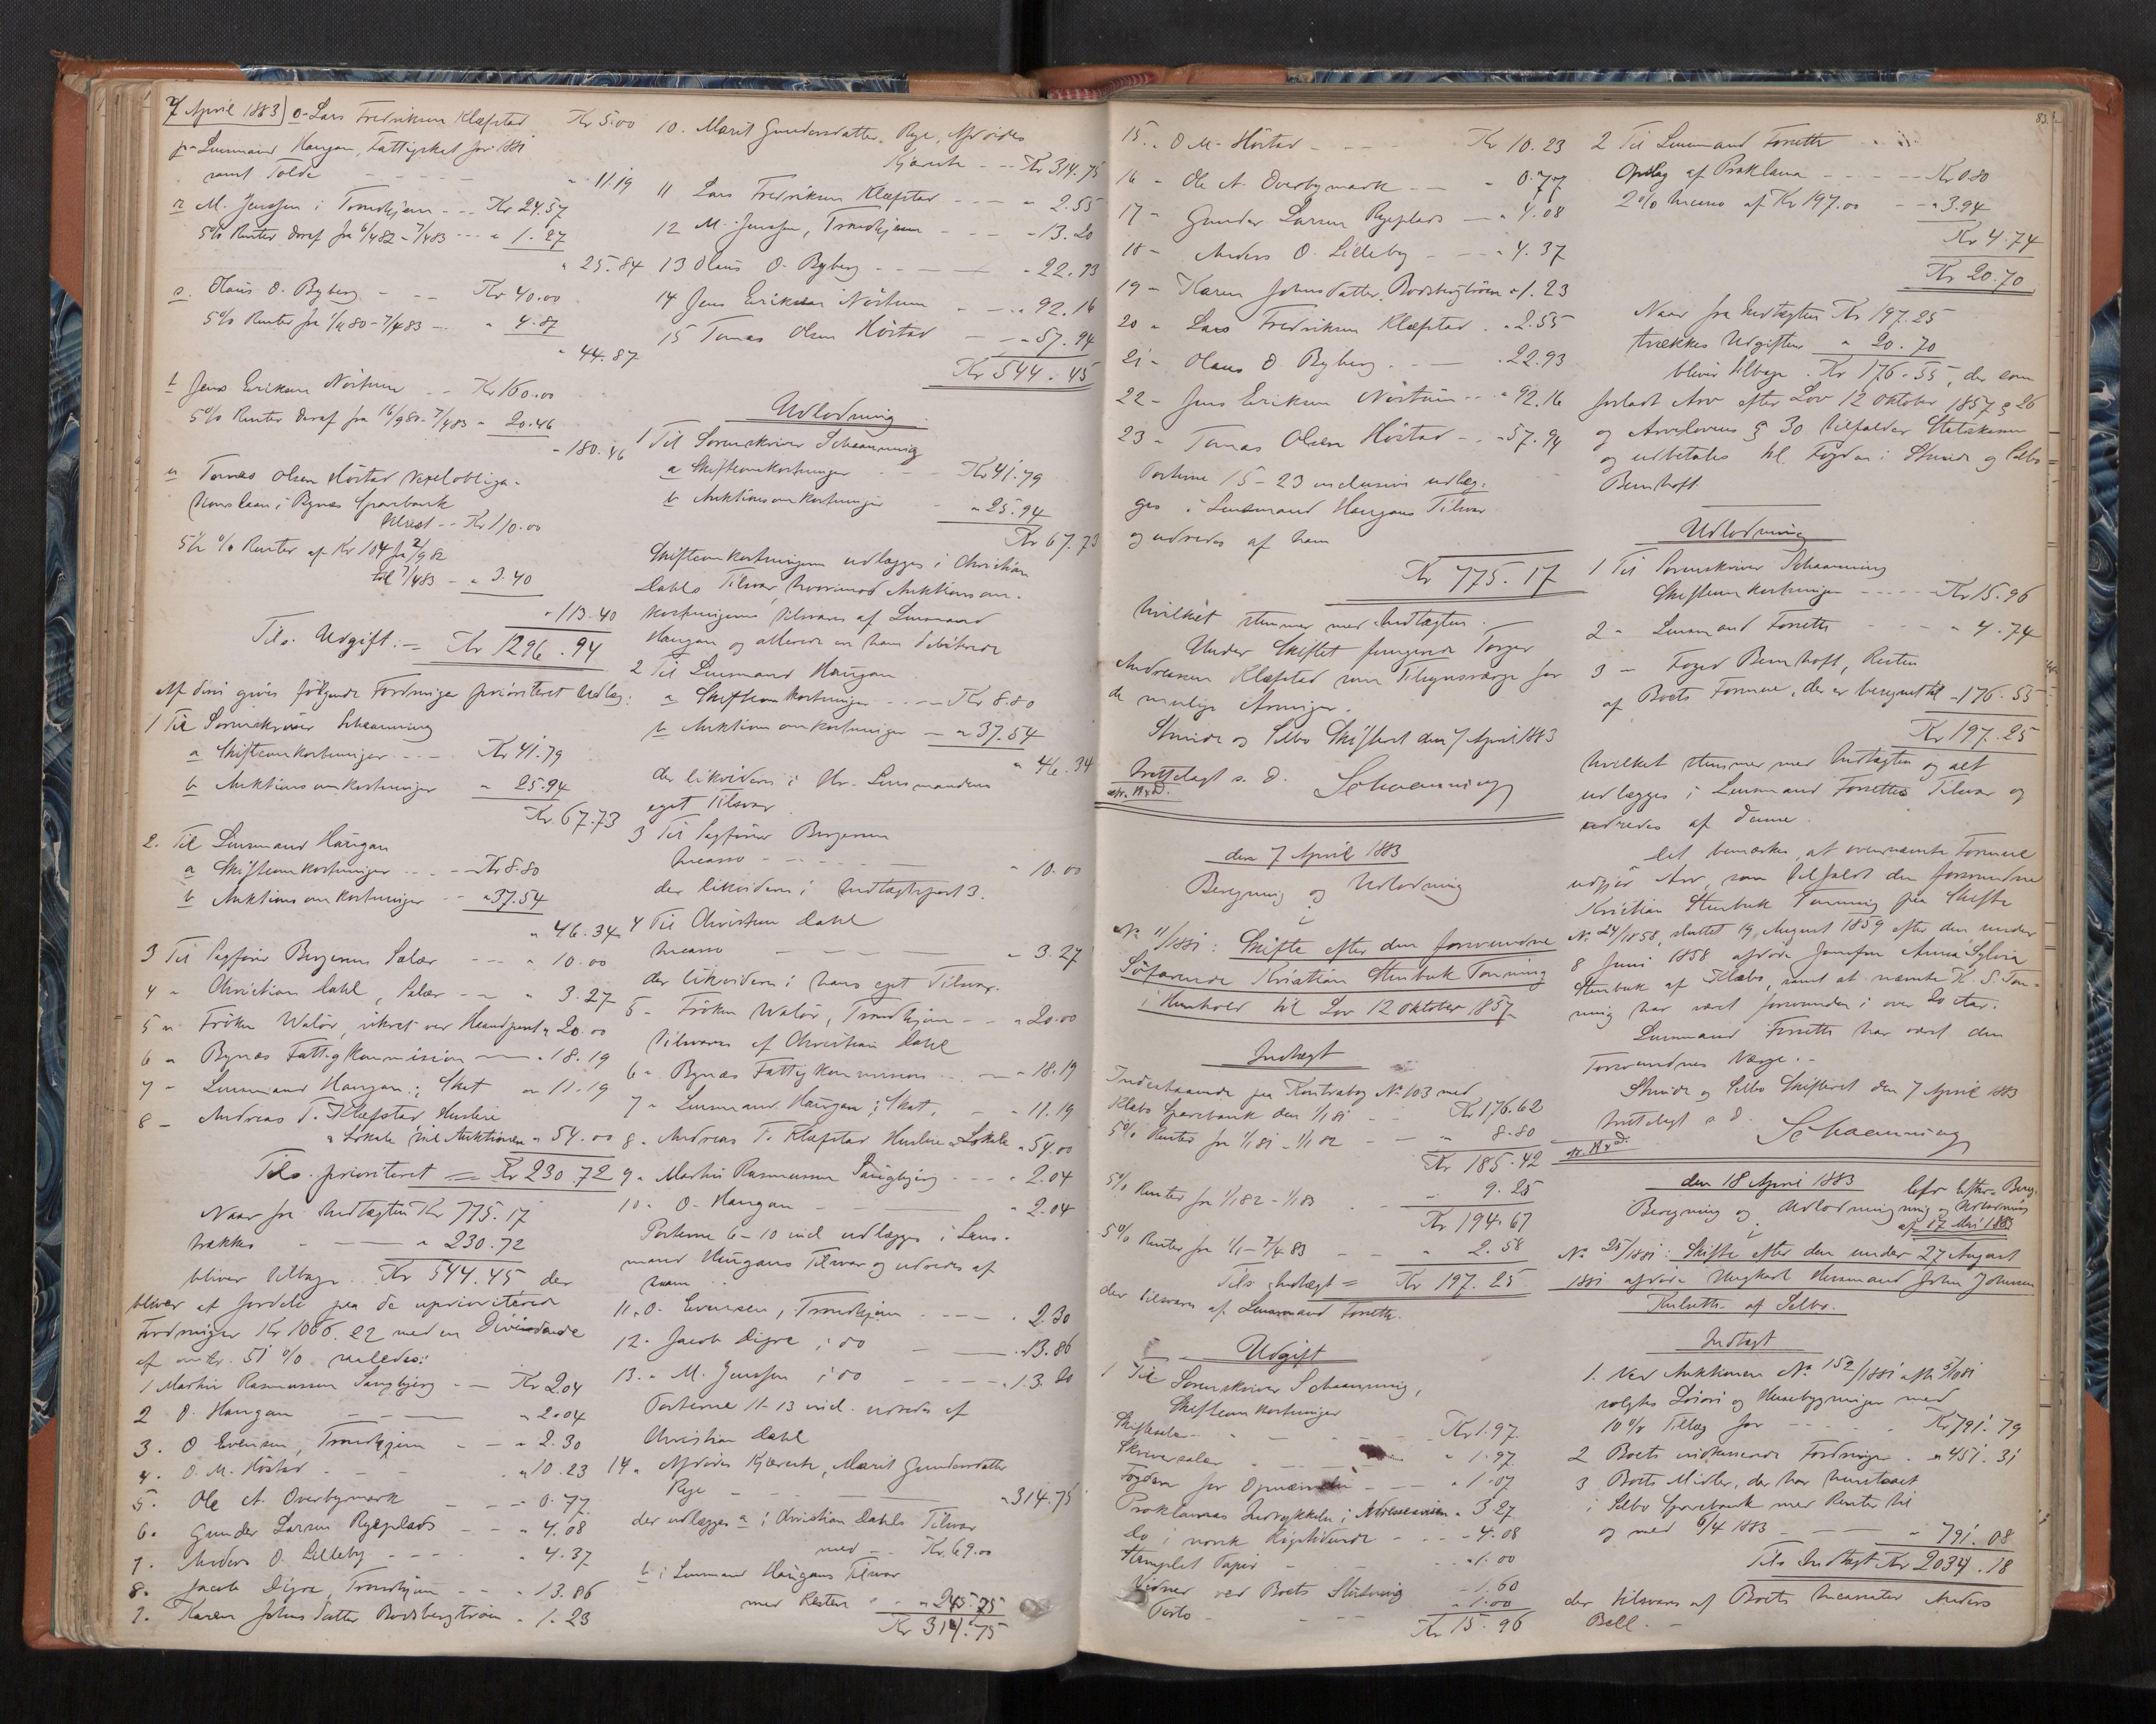 7 April 1883) o. Lars Fredriksen Klæfstad Kr 5.00
p. Lensmand Haugan, Fattigskat for 1881
samt Told - - - - - " 11.19
r M. Jenssen i Trondhjem - - Kr 24.57
5% Renter deraf fra 6/4 82 - 7/4 83 - - " 1.27
" 25.84
s. Olaus O. Byberg - - - Kr 40.00
5% Renter fra 80 - 7/4 83 - - " 4.87
" 44.87
t Jens Eriksen Nöstum - - Kr 160.00
5% Renter deraf fra 16/9 80 - 7/4 83 " 20.46
- 180.46
u Tomas Olsen Höstad Vexelobliga-
tionslaan i Bynæs Sparebank
tilrest - - Kr 110.00
5½ % Renter af Kr 104 fra 2/9 82
til 7/4 83 - " 3.40
" 113.40
Tils. Udgift. = Kr 1296.94
Af disse gives følgende Fordringer prioriteret Udlæg:
1 Til Sorenskriver Schaanning
a Skifteomkostninger - - - Kr 41.79
b Auktionsomkostninger " 25.94
Kr. 67.73
2. Til Lensmand Haugan
a Skifteomkostninger - - - Kr 8.80
b Auktionsomkostninger - - " 37.54
" 46.34
3 Til Sagfører Birgersen Salær - - - " 10.00
4 " Christian Dahl, Salær - - - " 3.27
5 " Fröken Walör, sikret ved Haandpant " 20.00
6 " Bynæs Fattigkommission - - - " 18.19
7 " Lensmand Haugan; Skat " 11.19
8 - Andreas T. Klæfstad, Husleie
" Lokale til Auktionen " 54.00
Tils. prioriteret = Kr 230.72
Naar fra Indtægten Kr 775.17
trækkes - - - " 230.72
bliver tilbage Kr 544.45 der
bliver at fordele paa de uprioriterede
Fordringer Kr 1066.22 med en Dividende
af omtr. 51 % saaledes:
1 Martin Rasmussen Saugbjerg - - Kr 2.04
2 O. Haugan - - - " 2.04
3. O Evensen, Trondhjem - - " 2.30
4. O. M. Höstad - - - " 10.23
5. Ole A. Overbymark - - - 0.77
6. Gunder Larsen Ryeplads - - " 4.08
7. Anders O. Lilleby - - - " 4.37
8. Jacob Digre, Trondhjem - - " 13.86
9. Karen Johnsdatter Bodsbergtrøen " 1.23
10. Marit Gundersdatter Rye, Afdødes
Kjæreste - - - Kr 314.75
11 Lars Fredriksen Klæfstad - - - " 2.55
12 M. Jenssen, Trondhjem - - - " 13.20
13 Olaus O. Byberg - - - " 22.93
14 Jens Eriksen Nöstum - - " 92.16
15 Tomas Olsen Höstad - - " 57.94
Kr 544.45
Udlodning
1 Til Sorenskriver Schaanning
a Skifteomkostninger - - Kr 41.79
b Auktionsomkostninger - " 25.94
Kr 67.73
Skifteomkostningerne udlægges i Christian
Dahls Tilsvar, hvorimod Auktionsom-
kostningerne tilsvares af Lensmand
Haugan og allerede er ham debiterede
2 Til Lensmand Haugan
a Skifteomkostninger - - - Kr 8.80
b Auktionsomkostninger - " 37.54
" 46.34
der likvideres i Hr. Lensmandens
eget Tilsvar
3 Til Sagfører Birgersen
Incasso - - - " 10.00
der likvideres i Indtægtspost 3.
4 Til Christian Dahl
Incasso - - - " 3.27
der likvideres i hans eget Tilsvar.
5 - Fröken Walör, Trondhjem - - " 20.00
tilsvares af Christian Dahl
6 " Bynæs Fattigkommission - - - " 18.19
7 " Lensmand Haugan; Skat. - - " 11.19
8 " Andreas T. Klæfstad Husleie " Lokale " 54.00
9 " Martin Rasmussen Saugbjerg - - - " 2.04
10 " O. Haugan - - - " 2.04
Posterne 6-10 incl udlægges i Lens-
mand Haugans Tilsvar og udredes af
ham
11 " O. Evensen, Trondhjem - - - " 2.30
12 " Jacob Digre i do - - - " 13.86
13. " M. Jenssen i do - - - " 13.20
Posterne 11-13 incl. udredes af
Christian Dahl
14 " Afdødes Kjæreste, Marit Gundersdatter
Rye - - - " 314.75
der udlægges a i Christian Dahls Tilsvar
med - - Kr. 69.00
b i Lensmand Haugans Tilsvar
med Resten - - " 245.75
Kr 314.75
83.
15. " O M. Höstad - - - Kr 10.23
16 - Ole A. Overbymark - - - " 0.77
17 " Gunder Larsen Ryeplads - " 4.08
18 - Anders O. Lilleby - - - " 4.37
19 - Karen Johnsdatter, Bodsbergtrøen " 1.23
20 " Lars Fredriksen Klæfstad - " 2.55
21 " Olaus O Byberg - - - " 22.93
22 - Jens Eriksen Nöstum - - " 92.16
23 " Tomas Olsen Höstad - - " 57.94
Posterne 15 - 23 inclusive udlæg-
ges i Lensmand Haugans Tilsvar
og udredes af ham
Kr 775.17
hvilket stemmer med Indtægten.
Under Skiftet fungerede Torger
Andreassen Klæfstad som Tilsynsværge for
de mulige Arvinger.
Strinde og Selbo Skifteret den 7 April 1883
Fremlagt s. D. Schaanning
den 7 April 1883
Beregning og Udlodning
i
No 11/1881: Skifte efter den forsvundne
Söfarende Kristian Stenbuk Tonning
i Henhold til Lov 12 Oktober 1857
Indtægt
Indestaaende paa Kontrabog No 103 med
Klæbo Sparebank den 1/1 81 - - Kr 176.62
5% Renter fra 1/1 81 - 1/1 82 - - " 8.80
Kr 185.42
5% Renter fra 1/1 82 - 1/1 83 - - " 9.25
Kr 194.67
5% Renter fra 1/1 - 7/4 83 - - " 2.58
Tils Indtægt = Kr 197.25
der tilsvares af Lensmand Forseth.
Udgift
1 Til Sorenskriver Schaanning,
Skifteomkostninger
Skiftesalær - - - Kr 1.97.
Skriversalær - - - " 1.97
Fogden for Opnævnelse - - - " 1.07
Proklamas Indrykkelse i Adresseavisen " 3.27
Do i norsk Rigstidende - - - " 4.08
Stemplet Papir - - - " 1.00
Vidner ved Boets Slutning - 1.60
Porto - - - " 1.00
Kr 15.96
2 Til Lensmand Forseth
Opslag af Proklama - - - - Kr 0.80
2% Incasso af Kr 197.00 - - " 3.94
Kr 4.74
Kr 20.70
Naar fra Indtægten Kr 197.25
trækkes Udgiften " 20.70
bliver tilbage Kr 176.55, der som
forladt Arv efter Lov 12 Oktober 1857 § 26
og Arvelovens § 30 tilfalder Statskassen
og udbetales til Fogden i Strinde og Selbo
Bernhoft
Udlodning
1 Til Sorenskriver Schaanning
Skifteomkostninger - - - - - Kr 15.96
2 " Lensmand Forseth - - - " 4.74
3 - Foged Bernhoft, Resten
af Boets Formue, der er beregnet til - 176.55
Kr 197.25
hvilket stemmer med Indtægten og alt
udlægges i Lensmand Forseths Tilsvar og
udredes af denne.
Det bemærkes, at ovennævnte Formue
udgjør Arv, som tilfaldt den forsvundne
Kristian Stenbuk Tonning paa Skifte
No 24/1858, sluttet 19 August 1859 efter den under
8 Juni 1858 afdøde Jomfru Anna Sylvia
Stenbuk af Klæbo, samt at nævnte K. S. Ton-
ning har været forsvunden i over 20 Aar.
Lensmand Forseth har været den
Forsvundnes Værge. -
Strinde og Selbo Skifteret den 7 April 1883
Fremlagt s. D. Schaanning
den 18 April 1883
Beregning og Udlodning
Cefr. Efter-Bereg-
ning og Udlodning
af 17 Mai 1883
i
No 25/1881: Skifte efter den under 27 August
1881 afdøde Ungkarl Husmand John Johnsen
Kulseth af Selbo.
Indtægt
1. Ved Auktionen No 152/1881 afh. 5/10 81
solgtes Løsøre og Husebygninger med
10% Tillæg for - - - Kr 791.79
2 Boets indkasserede Fordringer - " 451.31
3 Boets Midler, der har henstaaet
i Selbo Sparebank med Renter til
og med 6/4 1883 - - - " 791.08
Tils Indtægt Kr 2034.18
der tilsvares af Boets Incassator Anders
Bell. -